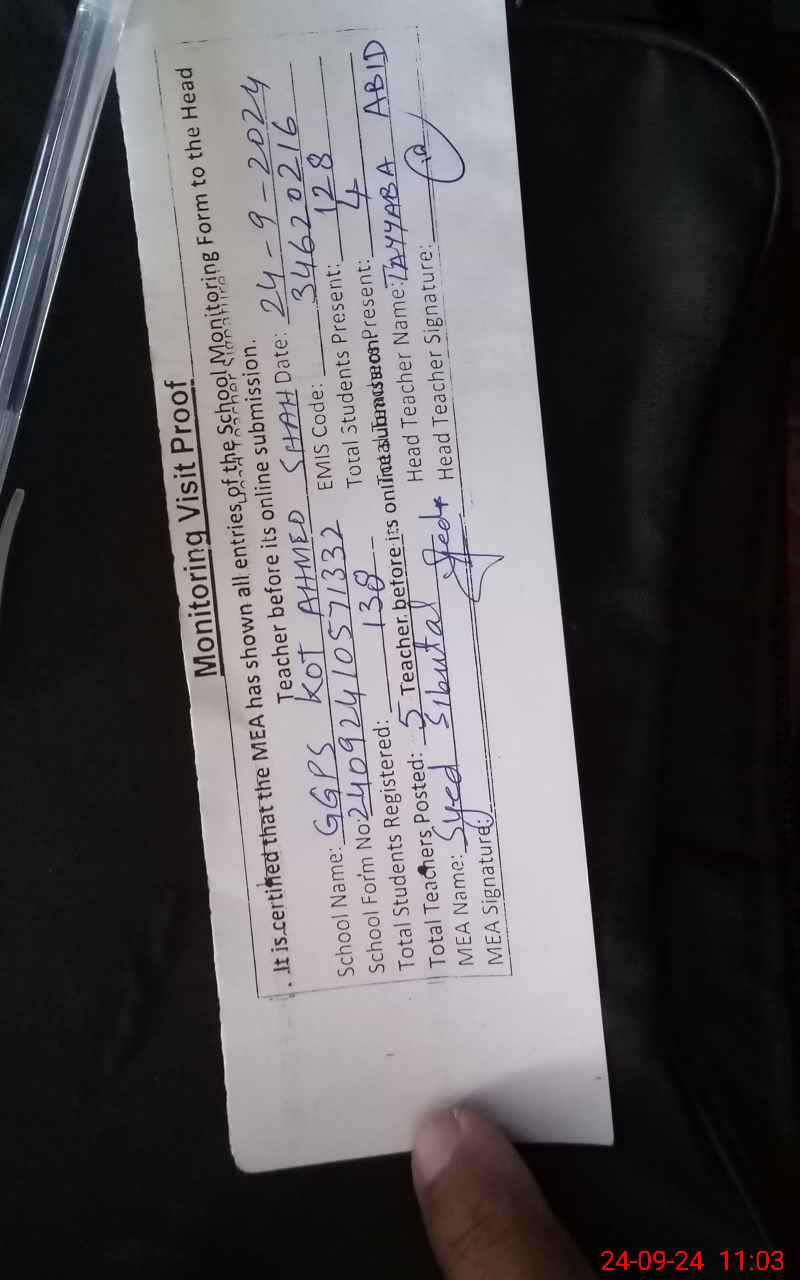 Monitoring Visit Proof
. It is certified that the MEA has shown all entries of the School Monitoring Form to the Head
Teacher before its online submission.
School Name: GGPS KOT AHMED SHAH Date: 24-9-2024
School Form No: 24092410571332 EMIS Code: 34620216
Total Students Registered: 138 Total Students Present: 128
Total Teachers Posted: 5 Teacher before its online submission Present: 4
MEA Name: Syed Head Teacher Name: TAYYABA ABID
MEA Signature: Head Teacher Signature:
24-09-24 11:03